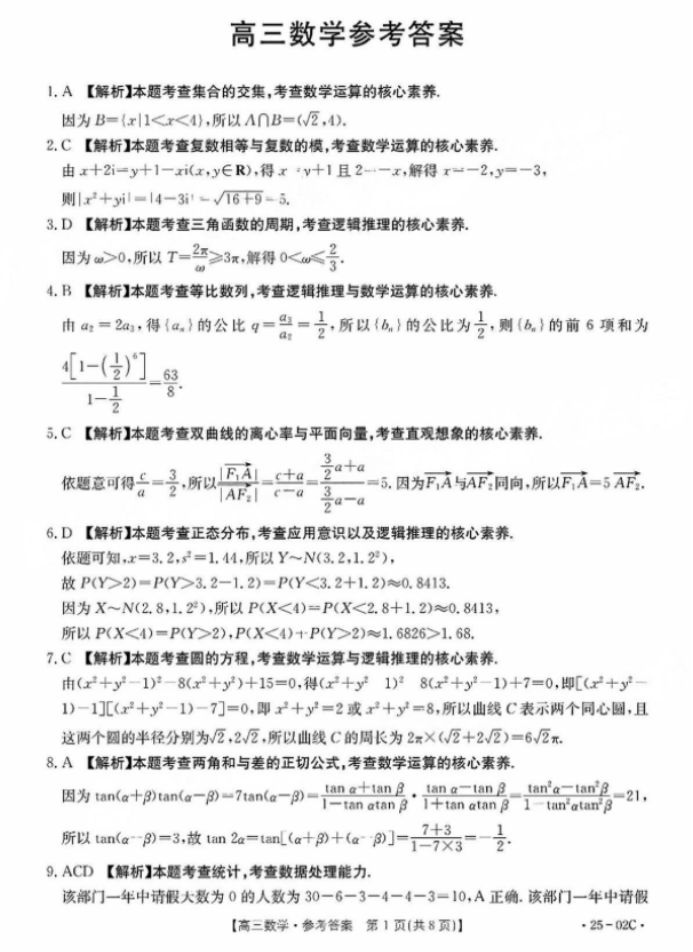 高三数学参考答案
1. A 【解析】本题考查集合的交集,考查数学运算的核心素养.
因为 B={x|1<x<4},所以 A∩B=(√2,4).
2. C 【解析】本题考查复数相等与复数的模,考查数学运算的核心素养.
由 x+2i=y+1-xi(x,y∈R),得 x=y+1 且 2=-x,解得 x=-2,y=-3,
则|x²+yi|=|4-3i|=√(16+9)=5.
3. D 【解析】本题考查三角函数的周期,考查逻辑推理的核心素养.
因为 ω>0,所以 T=2π/ω≥3π,解得 0<ω≤2/3.
4. B 【解析】本题考查等比数列,考查逻辑推理与数学运算的核心素养.
由 a₂=2a₃,得{aₙ}的公比 q=a₃/a₂=1/2,所以{bₙ}的公比为1/2,则{bₙ}的前 6 项和为
4[1-(1/2)⁶]/(1-1/2)=63/8.
5. C 【解析】本题考查双曲线的离心率与平面向量,考查直观想象的核心素养.
依题意可得c/a=3/2,所以|F₁A→|/|AF₂→|=(c+a)/(c-a)=(3/2a+a)/(3/2a-a)=5. 因为F₁A→与AF₂→同向,所以F₁A→=5 AF₂→.
6. D 【解析】本题考查正态分布,考查应用意识以及逻辑推理的核心素养.
依题可知,x=3.2,s²=1.44,所以 Y~N(3.2,1.2²),
故 P(Y>2)=P(Y>3.2-1.2)=P(Y<3.2+1.2)≈0.8413.
因为 X~N(2.8,1.2²),所以 P(X<4)=P(X<2.8+1.2)≈0.8413,
所以 P(X<4)=P(Y>2),P(X<4)+P(Y>2)≈1.6826>1.68.
7. C 【解析】本题考查圆的方程,考查数学运算与逻辑推理的核心素养.
由(x²+y²-1)²-8(x²+y²)+15=0,得(x²+y²-1)²-8(x²+y²-1)+7=0,即[(x²+y²-
1)-1][(x²+y²-1)-7]=0,即 x²+y²=2 或 x²+y²=8,所以曲线 C 表示两个同心圆,且
这两个圆的半径分别为√2,2√2,所以曲线 C 的周长为 2π×(√2+2√2)=6√2π.
8. A 【解析】本题考查两角和与差的正切公式,考查数学运算的核心素养.
因为 tan(α+β)tan(α-β)=7tan(α-β)=(tan α+tan β)/(1-tan αtan β)·(tan α-tan β)/(1+tan αtan β)=(tan²α-tan²β)/(1-tan²αtan²β)=21,
所以 tan(α-β)=3,故 tan 2α=tan[(α+β)+(α-β)]=(7+3)/(1-7×3)=-1/2.
9. ACD 【解析】本题考查统计,考查数据处理能力.
该部门一年中请假天数为 0 的人数为 30-6-3-4-4-3=10,A 正确. 该部门一年中请假
【高三数学·参考答案 第 1 页(共 8 页)】 ·25-02C·